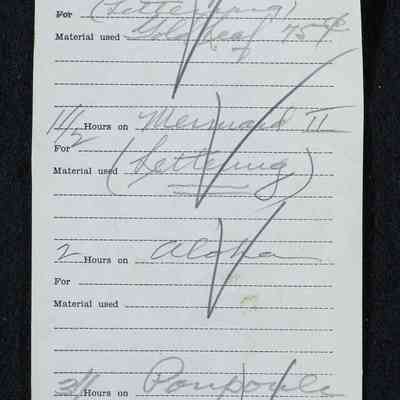 For (Lettering)
Material used Gold Leaf 75¢
1 1/2 Hours on Mermaid II
For
Material used (Lettering)
2 Hours on Aloha
For
Material used
Hours on